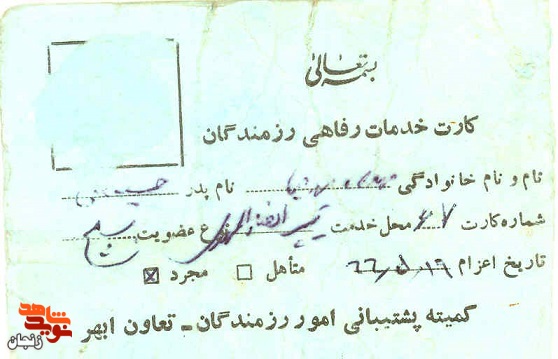 بسمه تعالی
کارت خدمات رفاهی رزمندگان
نام و نام خانوادگی نام پدر
شماره کارت محل خدمت نوع عضویت
تاریخ اعزام ۶۶،۵،۱۹ متأهل □ مجرد ☒
کمیته پشتیبانی امور رزمندگان - تعاون ابهر
نوید شاهد
زنجان